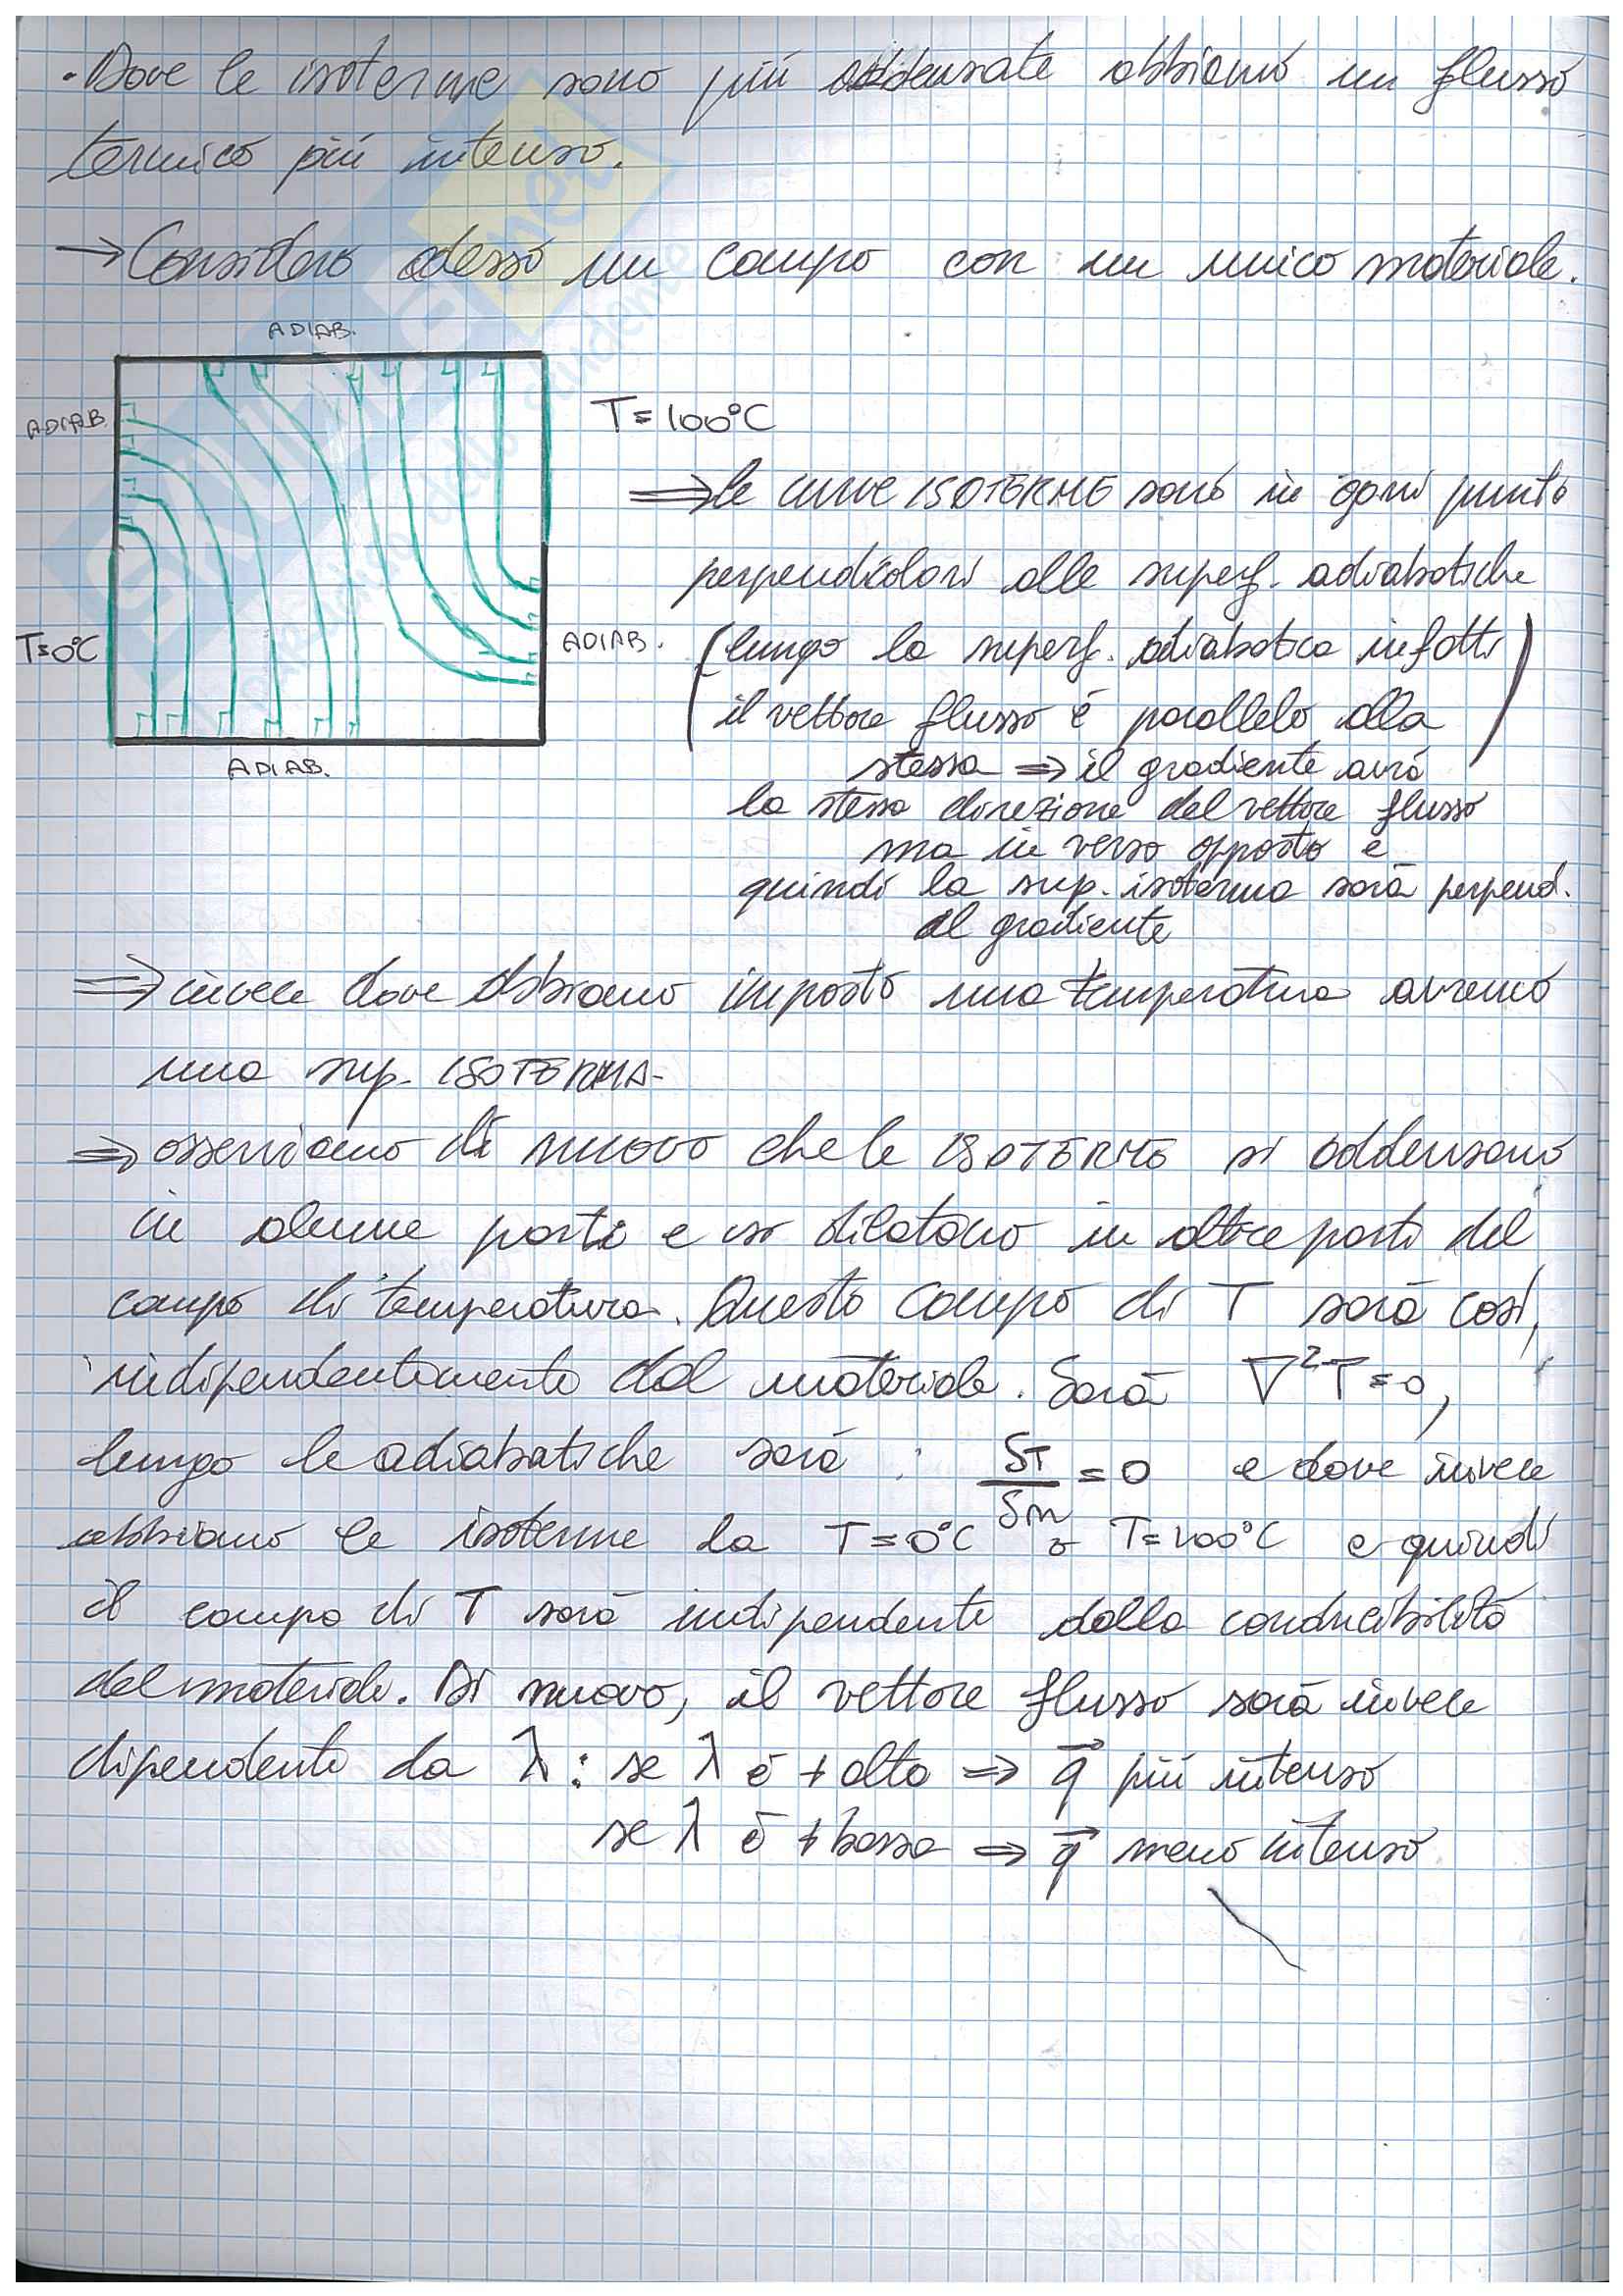 • Dove le isoterme sono più addensate abbiamo un flusso
termico più intenso.
→ Considero adesso un campo con un unico materiale.
ADIAB.
ADIAB.
T=100°C
⇒ le curve ISOTERME sono in ogni punto
perpendicolari alle superf. adiabatiche
T=0°C
ADIAB.
(lungo la superf. adiabatica infatti
il vettore flusso è parallelo alla
stessa ⇒ il gradiente avrà
ADIAB.
la stessa direzione del vettore flusso
ma in verso opposto e
quindi la sup. isoterma sarà perpend.
al gradiente)
⇒ invece dove abbiamo imposto una temperatura avremo
una sup. ISOTERMA.
⇒ osserviamo di nuovo che le ISOTERME si addensano
in alcune parti e si dilatano in altre parti del
campo di temperatura. Questo campo di T sarà così,
indipendentemente dal materiale. Sarà ∇²T=0,
lungo le adiabatiche sarà : δT/δn = 0 e dove invece
abbiamo le isoterme da T=0°C a T=100°C e quindi
il campo di T sarà indipendente dalla conducibilità
del materiale. Di nuovo, il vettore flusso sarà invece
dipendente da λ: se λ è + alta ⇒ q⃗ più intenso
se λ è + bassa ⇒ q⃗ meno intenso